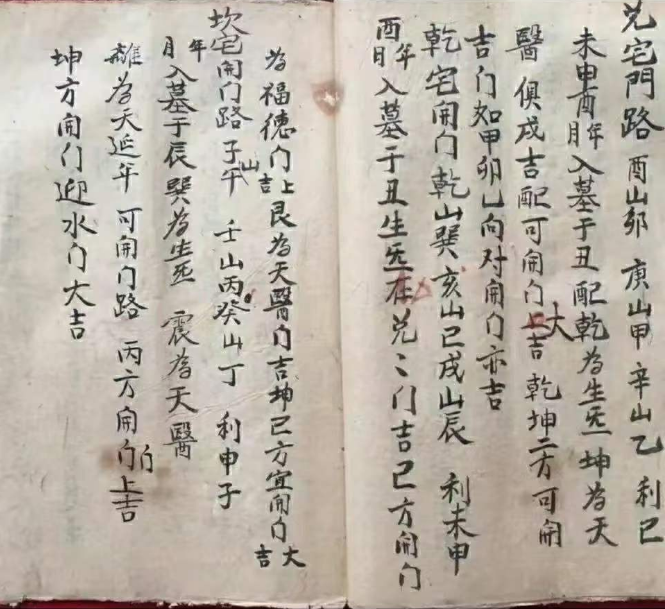 兑宅門路 酉山卯 庚山甲 辛山乙 利巳
未申酉年月入墓于丑 配乾為生炁 坤為天
醫 俱成吉配可開门上大吉 乾坤二方可開
吉门如甲卯乙向对開门亦吉
乾宅開门 乾山巽 亥山巳 戌山辰 利未申
酉年月入墓于丑生炁在兑〻门吉巳方開门
為福德门上吉艮為天醫门吉坤巳方宜開门大吉
坎宅開门路 子山午 壬山丙 癸山丁 利申子
年月入墓于辰 巽為生炁 震為天醫
離為天延年 可開门路 丙方開门上吉
坤方開门迎水门大吉